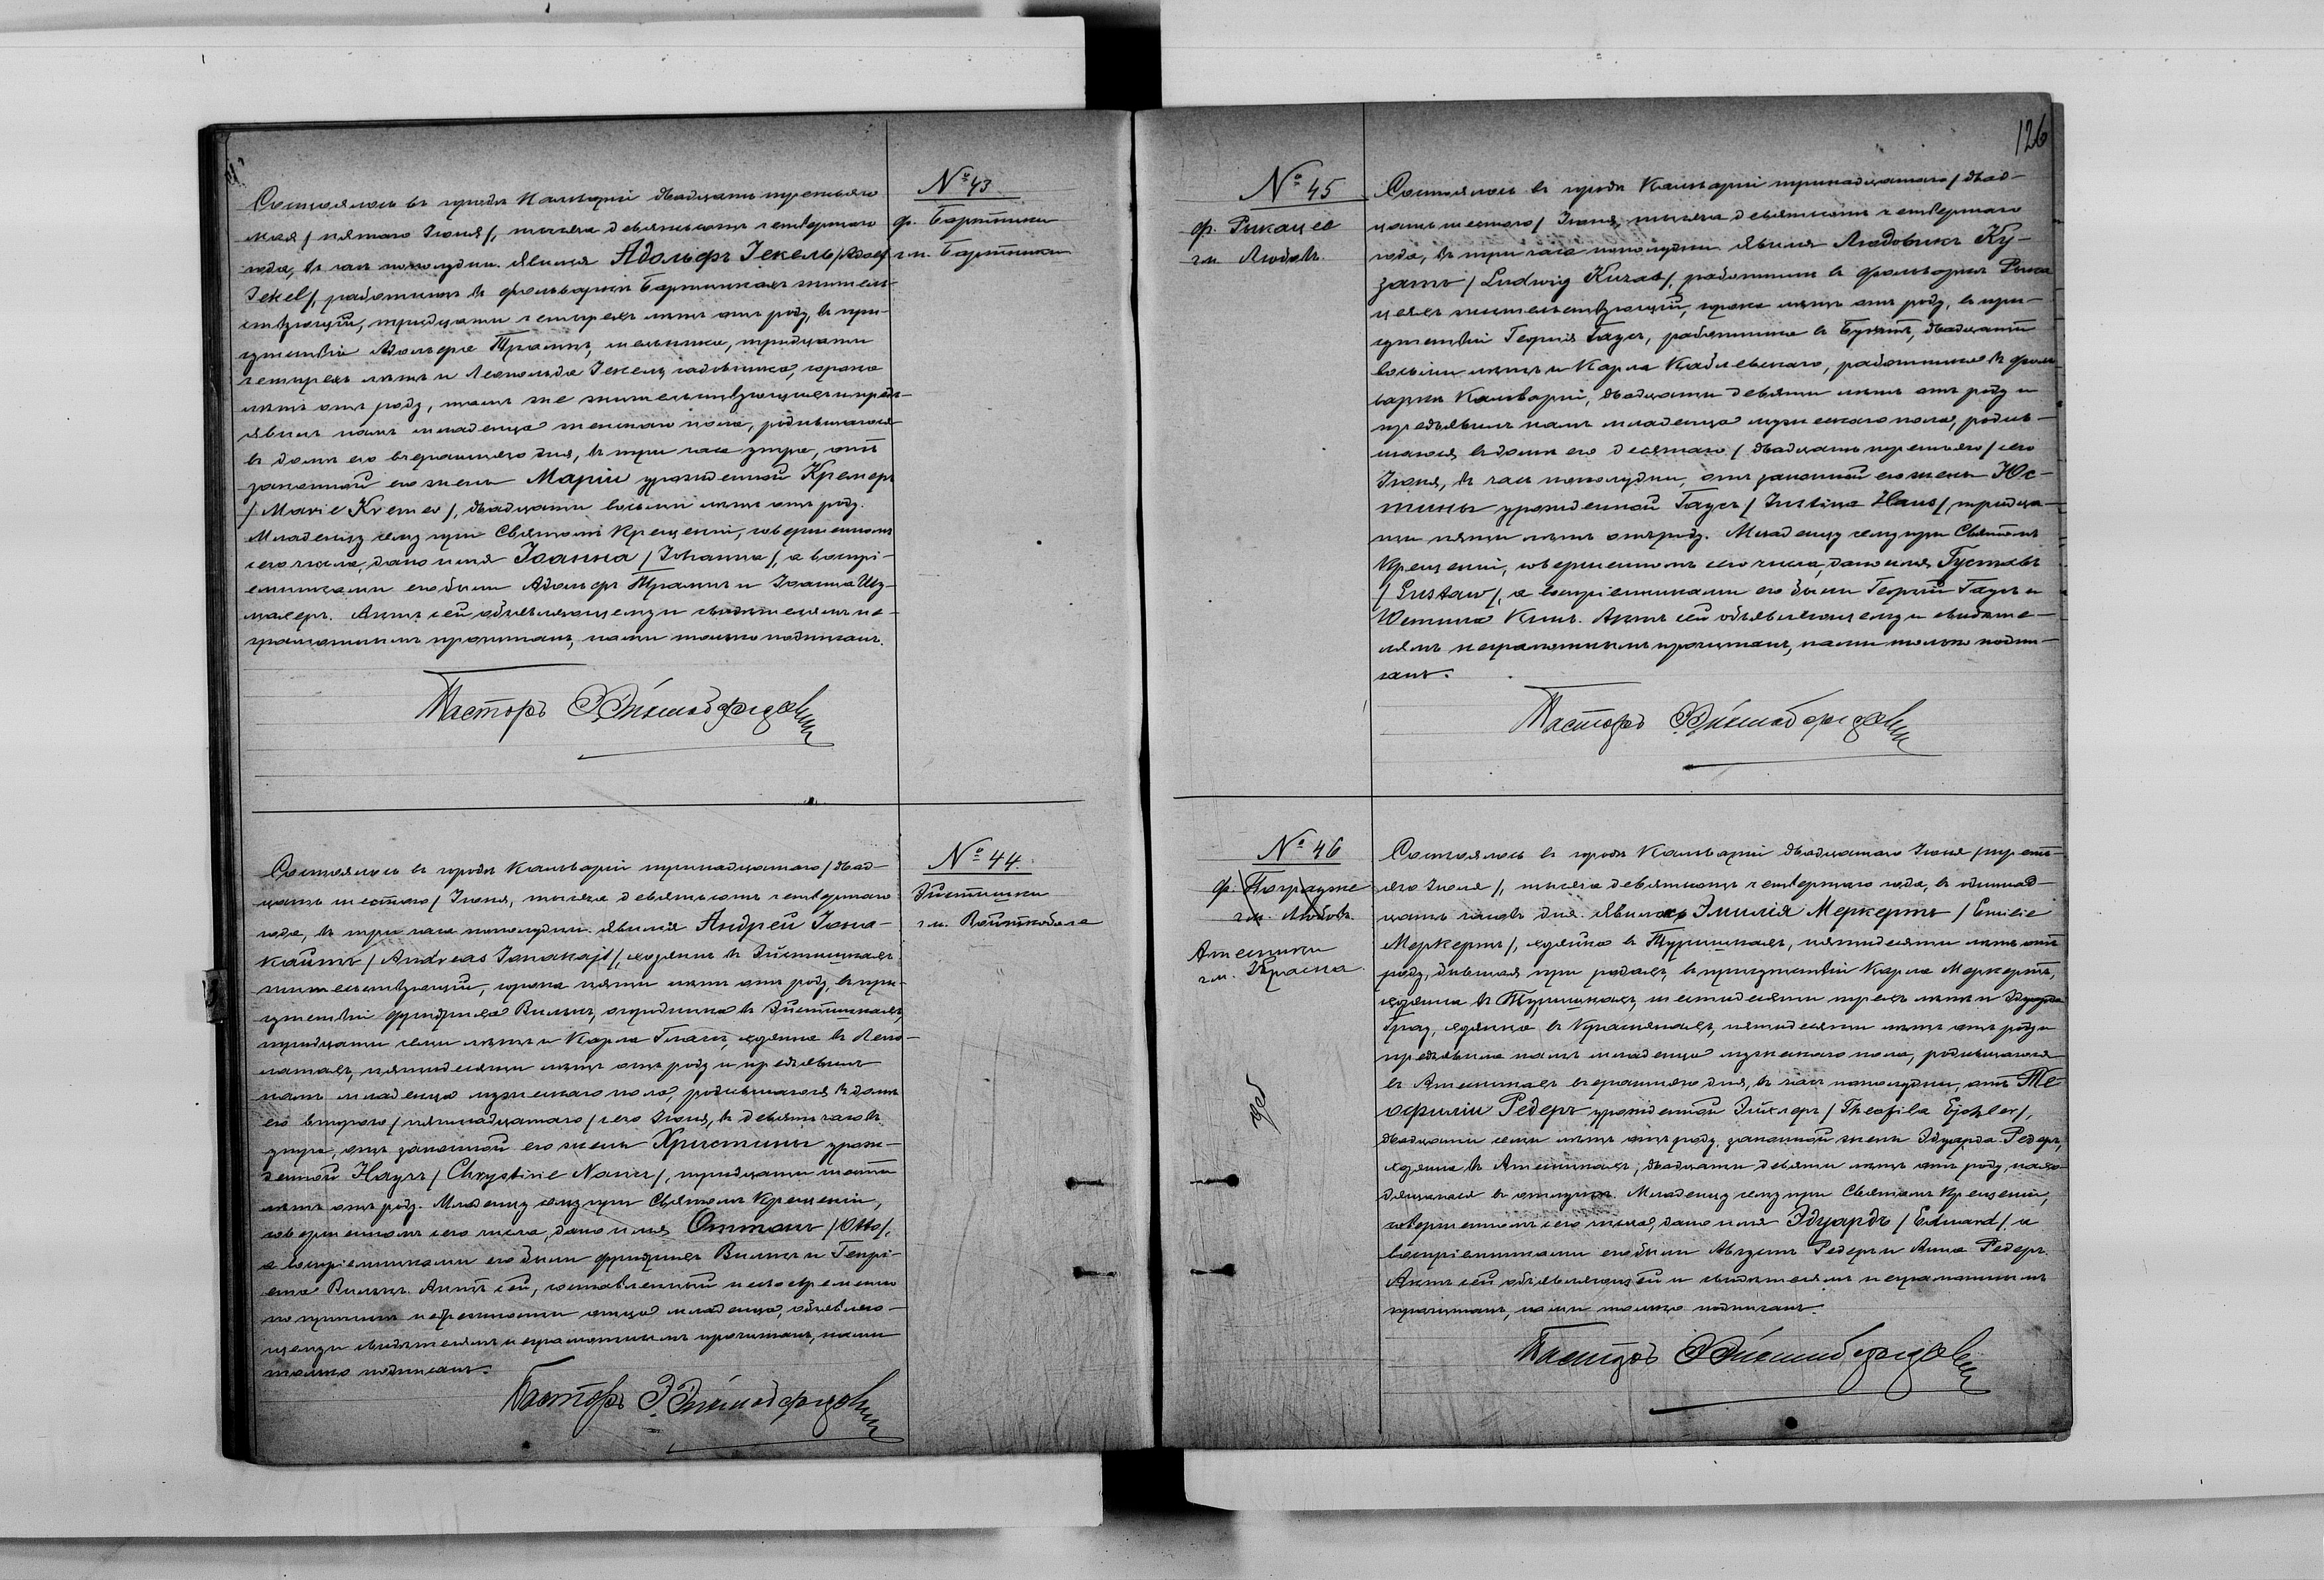 № 43
ф. Бартники
гм. Бартники
Состоялось въ городѣ Кальваріи двадцать третьяго
мая / пятаго Іюня /, тысяча девятьсотъ четвертаго
года, въ часъ пополудни. Явился Адольфъ Іекель / Adolf
Jekel /, работникъ въ фольваркѣ Бартникахъ житель-
ствующій, тридцати четырехъ лѣтъ отъ роду, въ при-
сутствіи Адольфа Трампъ, мельника, тридцати
четырехъ лѣтъ и Леопольда Іекель садовника, сорока
лѣтъ отъ роду, тамъ же жительствующихъ и предъ-
явилъ намъ младенца женскаго пола, родившагося
въ домѣ его вчерашняго дня, въ три часа утра, отъ
законной его жены Маріи урожденной Кремеръ
/ Marie Kremer /, двадцати восьми лѣтъ отъ роду.
Младенцу сему при Святомъ Крещеніи, совершенномъ
сего числа, дано имя Іоанна / Johanna /, а воспрі-
емниками его были Адольфъ Трампъ и Іоанна
Актъ сей объявляющему и свидѣтелямъ не-
грамотнымъ прочитанъ, нами только подписанъ.
Пасторъ
№ 44.
гм. Войткобола
Состоялось въ городѣ Кальваріи тринадцатаго / двад-
цать шестаго / Іюня, тысяча девятьсотъ четвертаго
года, въ три часа пополудни. Явился Андрей Іона-
кайтъ / Andreas Jonakajt /, хозяинъ въ
жительствующій, сорока пяти лѣтъ отъ роду, въ при-
сутствіи Фридриха Вильцъ, въ
тридцати семи лѣтъ и Карла хозяина въ
пятидесяти лѣтъ отъ роду и предъявилъ
намъ младенца мужескаго пола, родившагося въ домѣ
его втораго / пятнадцатаго / сего Іюня, въ девять часовъ
утра, отъ законной его жены Христины урож-
денной Наусъ / Chrystine Naus /, тридцати шести
лѣтъ отъ роду. Младенцу сему при Святомъ Крещеніи,
совершенномъ сего числа, дано имя Оттонъ / Otto /,
а воспріемниками его были Фридрихъ Вильцъ и Генрі-
ета Вильцъ. Актъ сей, составленный несвоевременно
по причинѣ отца младенца, объявляю-
щему и свидѣтелямъ неграмотнымъ прочитанъ, нами
только подписанъ.
Пасторъ
126
№ 45
ф. Рыкацее
гм. Любовъ.
Состоялось въ городѣ Кальваріи тринадцатаго / двад-
цать шестаго / Іюня, тысяча девятьсотъ четвертаго
года, въ три часа пополудни. Явился Людовикъ Ку-
затъ / Ludwig Kuzat /, работникъ въ фольваркѣ Рыка
цеяхъ жительствующій, сорока лѣтъ отъ роду, въ при-
сутствіи Георгія Гаусъ, работника въ двадцати
восьми лѣтъ и Карла работника въ фоль-
варкѣ Кальваріи, двадцати девяти лѣтъ отъ роду и
предъявилъ намъ младенца мужескаго пола, родив-
шагося въ домѣ его десятаго / двадцать третьяго / сего
Іюня, въ часъ пополудни, отъ законной его жены Юс-
тины урожденной Гаусъ / Justine Haus / тридца-
ти пяти лѣтъ отъ роду. Младенцу сему при Святомъ
Крещеніи, совершенномъ сего числа, дано имя Густавъ
/ Gustaw /, а воспріемниками его были Георгій Гаусъ и
Актъ сей объявляющему и свидѣте-
лямъ неграмотнымъ прочитанъ, нами только подпи-
санъ.
Пасторъ
№ 46
гм. Любовъ.
Атесники
гм. Красна.
Состоялось въ городѣ Кальваріи двадцатаго Іюня / треть-
яго Іюля /, тысяча девятьсотъ четвертаго года, въ одиннад-
цать часовъ дня. Явилась Эмилія Меркертъ / Emilie
Меркертъ /, хозяйка въ пятидесяти лѣтъ отъ
роду, бывшая при родахъ, въ присутствіи Карла Меркертъ,
хозяина въ шестидесяти трехъ лѣтъ и Эдуарда
хозяина въ пятидесяти лѣтъ отъ роду и
предъявила намъ младенца мужескаго пола, родившагося
въ Атесникахъ вчерашняго дня, въ часъ пополудни, отъ Те-
офиліи Редеръ урожденной Эйхлеръ / Theofila Ejchler /,
двадцати семи лѣтъ отъ роду, законной жены Эдуарда Редеръ,
хозяина въ Атесникахъ, двадцати девяти лѣтъ отъ роду, нахо-
дящагося въ отлучкѣ. Младенцу сему при Святомъ Крещеніи,
совершенномъ сего числа, дано имя Эдуардъ / Eduard / и
воспріемниками его были Августъ Редеръ и Анна Редеръ.
Актъ сей объявляющей и свидѣтелямъ неграмотнымъ
прочитанъ, нами только подписанъ.
Пасторъ